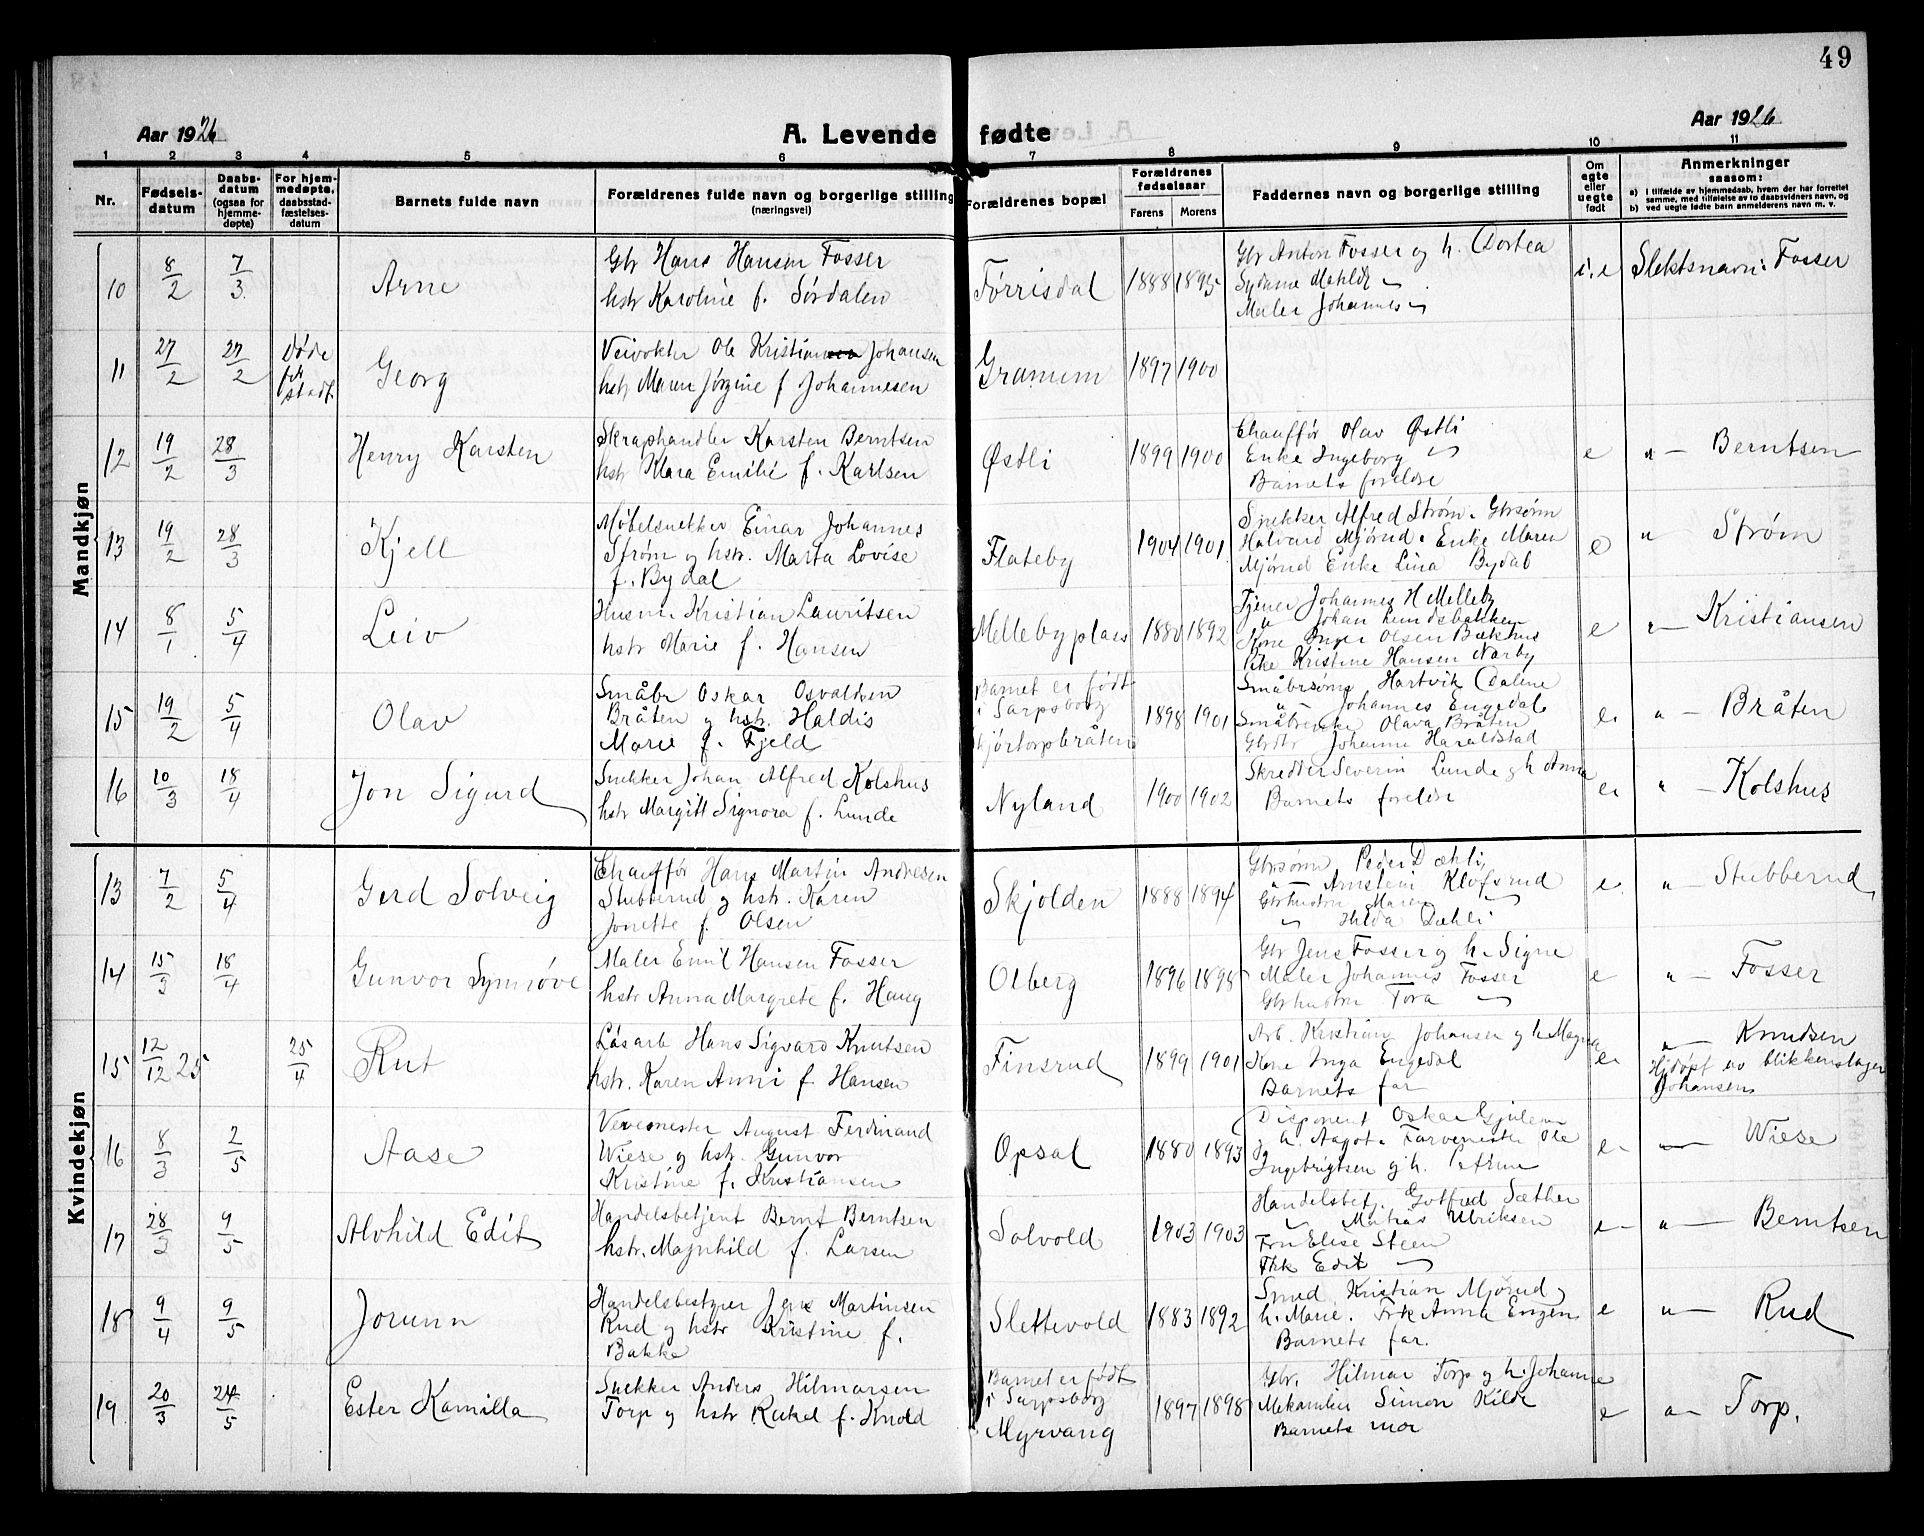 49
Aar 1926 A. Levende fødte Aar 1926
1 2 3 4 5 6 7 8 9 10 11
Nr. Fødsels-datum Daabs-datum (ogsaa for hjemme-døpte) For hjem-medøpte, daabsstad-fæstelses-datum Barnets fulde navn Forældrenes fulde navn og borgerlige stilling (næringsvei) Forældrenes bopæl Forældrenes fødselsaar Farens Morens Faddernes navn og borgerlige stilling Om egte eller uegte født Anmerkninger saasom:
a) i tilfælde av hjemmedaab, hvem der har forrettet samme, med tilføielse av to daabsvidners navn, og
b) ved uegte fødte barn anmelderens navn m. v.
Mandkjøn
10 8/2 7/3 Arne
Gbr Hans Hansen Fosser
hstr Karoline f. Sørdalen
Tørrisdal 1888 1895
Gbr Anton Fosser og h. Dortea
Maler Johannes
Slektsnavn: Fosser
11 27/2 27/2 Døde før stadf. Georg
Veivokter Ole Kristian Johansen
hstr Maren Jørgine f Johannesen
Gramum 1897 1900
12 19/2 28/3 Henry Karsten
Skraphandler Karsten Berntsen
hstr Klara Emilie f. Karlsen
Østli 1899 1900
Chauffør Olav Østli
Enke Ingeborg
Barnets foreldre
e " — Berntsen
13 19/2 28/3 Kjell
Møbelsnekker Einar Johannes
Strøm og hstr. Marta Lovise
f. Bydal
Flateby 1904 1901
Snekker Alfred Strøm. Gbrsønn
Halvard Mjørud. Enke Maren
Mjørud Enke Lina Bydal
e " — Strøm
14 8/1 5/4 Leiv
Husm. Kristian Lauritsen
hstr Marie f. Hansen
Mellebyplass 1880 1892
Tjener Johannes H Melleby
" Johan Lundsbakken
Kone Inger Olsen Bækhus
Pike Kristine Hansen Nærby
e " — Kristiansen
15 19/2 5/4 Olav
Småbr Oskar Osvaldsen
Bråten og hstr. Haldis
Marie f. Fjeld
Barnet er født
i Sarpsborg
Skjørtorpbråten 1898 1901
Småbrsønn Hartvik Dalene
" — Johannes Engedal
Småbrenke Olava Bråten
Gbrdtr Johanne Haraldstad
e " — Bråten
16 10/3 18/4 Jon Sigurd
Snekker Johan Alfred Kolshus
hstr Margitt Signora f. Lunde
Nyland 1900 1902
Skredder Severin Lunde og h Anna
Barnets foreldre
e " — Kolshus
Kvindekjøn
13 7/2 5/4 Gerd Solveig
Chauffør Hans Martin Andresen
Stubberud og hstr. Karen
Jonette f. Olsen
Skjolden 1888 1894
Gbrsønn Peder Dæhli
" — Arnstein Klofsrud
Gbrhustru Maren
" Hilda Dæhli
e. " — Stubberud
14 15/3 18/4 Gunvor Synnøve
Maler Emil Hansen Fosser
hstr Anna Margrete f. Haug
Olberg 1896 1898
Gbr Jens Fosser og h. Signe
Maler Johannes Fosser
Gbrhustru Tora
e " — Fosser
15 12/12 25 25/4 Rut
Løsarb Hans Sigvard Knutsen
hstr. Karen Anni f. Hansen
Finsrud 1899 1901
Arb. Kristian Johansen og h. Magna
Kone Inga Engedal
Barnets far
e " — Knudsen
Hjdøpt av blikkenslager
Johansen
16 8/3 2/5 Aase
Vevemester August Ferdinand
Wiese og hstr. Gunvor
Kristine f. Kristiansen
Opsal 1880 1893
Disponent Oskar Gjulem
og h. Aagot. Farvemester Ole
Ingebrigtsen og h. Petrine
e — Wiese
17 28/3 9/5 Alvhild Edit
Handelsbetjent Bernt Berntsen
hstr. Magnhild f. Larsen
Solvold 1903 1903
Handelsbetj. Gotfred Sæther
" Matias Ulriksen
Fru Elise Steen
Frk Edit
e " — Berntsen
18 9/4 9/5 Jorunn
Handelsbestyrer Jens Martinsen
Rud og hstr Kristine f.
Bakke
Slettevold 1883 1892
Smed Kristian Mjørud
h. Marie. Frk Anna Engen
Barnets far.
e " — Rud
19 20/3 24/5 Ester Kamilla
Snekker Anders Hilmarsen
Torp og hstr Rakel f. Knold
Barnet er født
i Sarpsborg
Myrvang 1897 1898
Gbr. Hilmar Torp og h. Johanne
Mekaniker Simon Kilde
Barnets mor
e " — Torp.